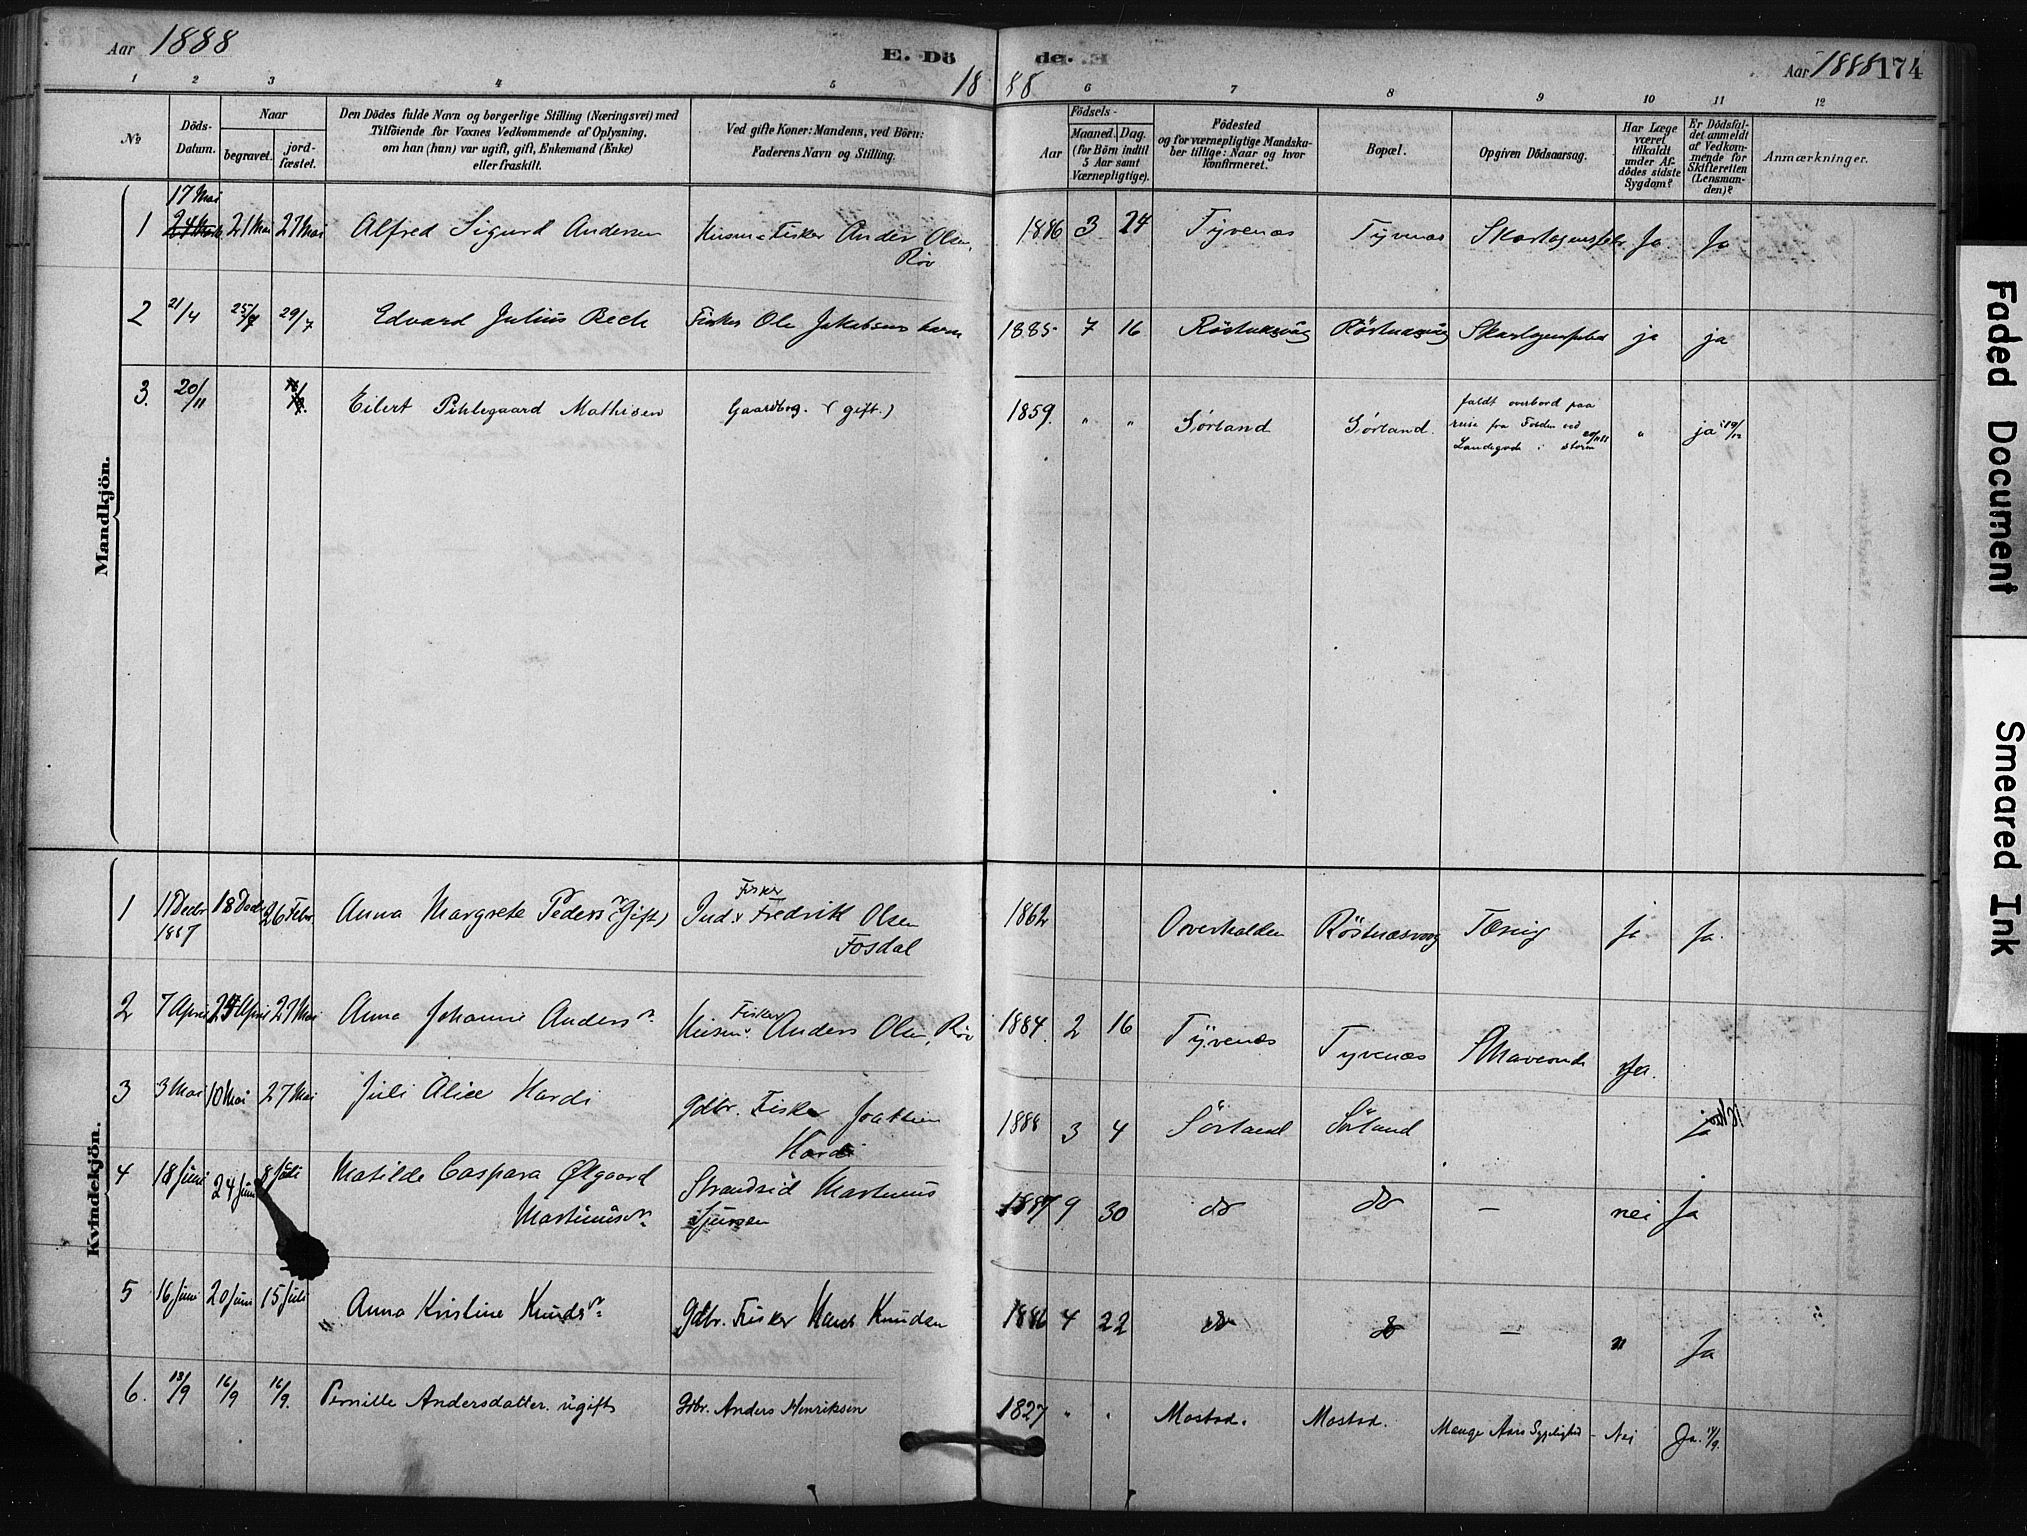 Aar 1888
E. Dö
18
88
de.
Aar 1888 174
1 2 3 4 5 6 7 8 9 10 11 12
No
Döds-
Datum.
Naar
begravet.
jord-
fæstet.
Den Dödes fulde Navn og borgerlige Stilling (Næringsvei) med
Tilföiende for Voxnes Vedkommende af Oplysning,
om han (hun) var ugift, gift, Enkemand (Enke)
eller fraskilt.
Ved gifte Koner: Mandens, ved Börn:
Faderens Navn og Stilling.
Födsels-
Aar
Maaned. Dag.
(for Börn indtil
5 Aar samt
Værnepligtige).
Födested
og for værnepligtige Mandska-
ber tillige: Naar og hvor
konfirmeret.
Bopæl.
Opgiven Dödsaarsag.
Har Læge
været
tilkaldt
under Af-
dödes sidste
Sygdom?
Er Dödsfal-
det anmeldt
af Vedkom-
mende for
Skifteretten
(Lensman-
den)?
Anmærkninger.
Mandkjön.
17 Mai
1 21 Mai 27 Mai Alfred Sigurd Andersen Husm. Fisker Anders Olsen, 1886 3 24 Tyvenæs Tyvenæs Skarlagensfeber Ja Ja
Röv
2 21/4 25/4 29/7 Edvard Julius Beck Fisker Ole Jakobsens barn 1885 7 16 Röstnæsvåg Röstnæsvåg Skarlagensfeber ja ja
3. 20/11 Eilert Pihlegaard Mathisen Gaardbrg. (gift.) 1859. " " Sörland Sörland. faldt overbord paa
reise fra Bodøen ved
Landegode i storm 20/11 88 " ja 19/12
Kvindekjön.
1 11 Decbr 1887 18 Decbr 26 Febr. Anna Margrete Pedersn (Gift) Ind. Fisker Fredrik Olsen
Fosdal 1862 Overhalden Röstnæsvaag Tæring ja Ja.
2 7 April 24 April 27 Mai Anna Johanne Andersn. Husm. Fisker Anders Olsen, Röv 1884. 2 16 Tyvenæs Tyvenæs Ja.
3 3 Mai 10 Mai 27 Mai Juli Alice Hardi Gdbr. Fisker Joakim
Hardi 1888 3 4 Sörland Sörland ja
4 18 Juni 24 Juni 8 Juli Matilde Caspara Ølgaard
Martinusn. Strandsid Martinus
Sjursen 1887 9 30 do do — nei Ja
5 16 Juni 20 Juni 15 Juli Anna Kristine Knudsn. Gdbr. Fisker Hans Knudsen 1886 4 22 do do — " Ja
6. 13/9 16/9 16/9. Pernille Andersdatter. ugift Gdbr. Anders Henriksen 1827 " " Mostad. Mostad. Mange Aars Sygelighed - Nei Ja. 17/9.
Faded Document
Smeared Ink